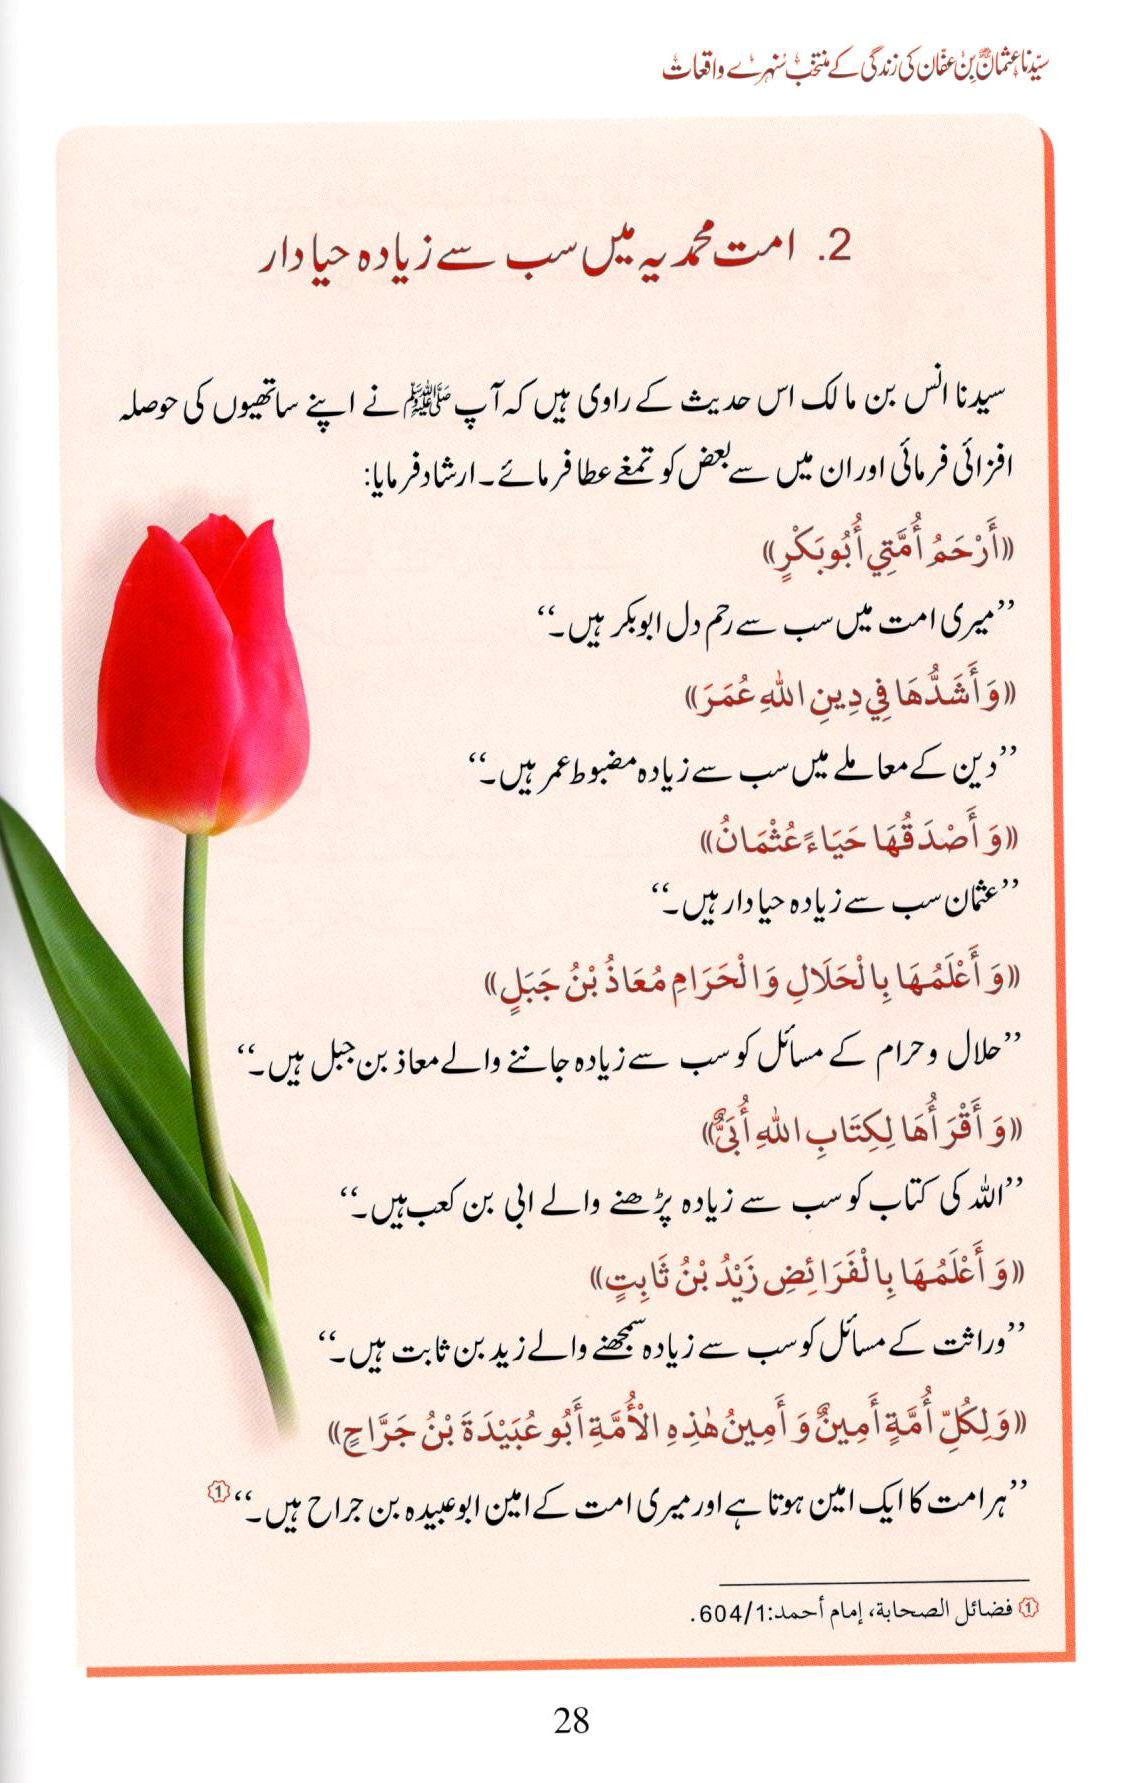 سیّدنا عثمان بن عفان کی زندگی کے منتخب سنہرے واقعات
2. امت محمدیہ میں سب سے زیادہ حیا دار
سیدنا انس بن مالک اس حدیث کے راوی ہیں کہ آپ ﷺ نے اپنے ساتھیوں کی حوصلہ
افزائی فرمائی اور ان میں سے بعض کو تمغے عطا فرمائے۔ ارشاد فرمایا:
«أَرْحَمُ أُمَّتِي أَبُو بَكْرٍ»
’’میری امت میں سب سے رحم دل ابوبکر ہیں۔‘‘
«وَ أَشَدُّهَا فِي دِينِ اللهِ عُمَرَ»
’’دین کے معاملے میں سب سے زیادہ مضبوط عمر ہیں۔‘‘
«وَ أَصْدَقُهَا حَيَاءً عُثْمَانُ»
’’عثمان سب سے زیادہ حیا دار ہیں۔‘‘
«وَ أَعْلَمُهَا بِالْحَلَالِ وَالْحَرَامِ مُعَاذُ بْنُ جَبَلٍ»
’’حلال و حرام کے مسائل کو سب سے زیادہ جاننے والے معاذ بن جبل ہیں۔‘‘
«وَ أَقْرَأُهَا لِكِتَابِ اللهِ أُبَيٌّ»
’’اللہ کی کتاب کو سب سے زیادہ پڑھنے والے ابی بن کعب ہیں۔‘‘
«وَ أَعْلَمُهَا بِالْفَرَائِضِ زَيْدُ بْنُ ثَابِتٍ»
’’وراثت کے مسائل کو سب سے زیادہ سمجھنے والے زید بن ثابت ہیں۔‘‘
«وَ لِكُلِّ أُمَّةٍ أَمِينٌ وَ أَمِينُ هٰذِهِ الْأُمَّةِ أَبُو عُبَيْدَةَ بْنُ جَرَّاحٍ»
’’ہر امت کا ایک امین ہوتا ہے اور میری امت کے امین ابوعبیدہ بن جراح ہیں۔‘‘ ①
① فضائل الصحابة، إمام أحمد:604/1.
28